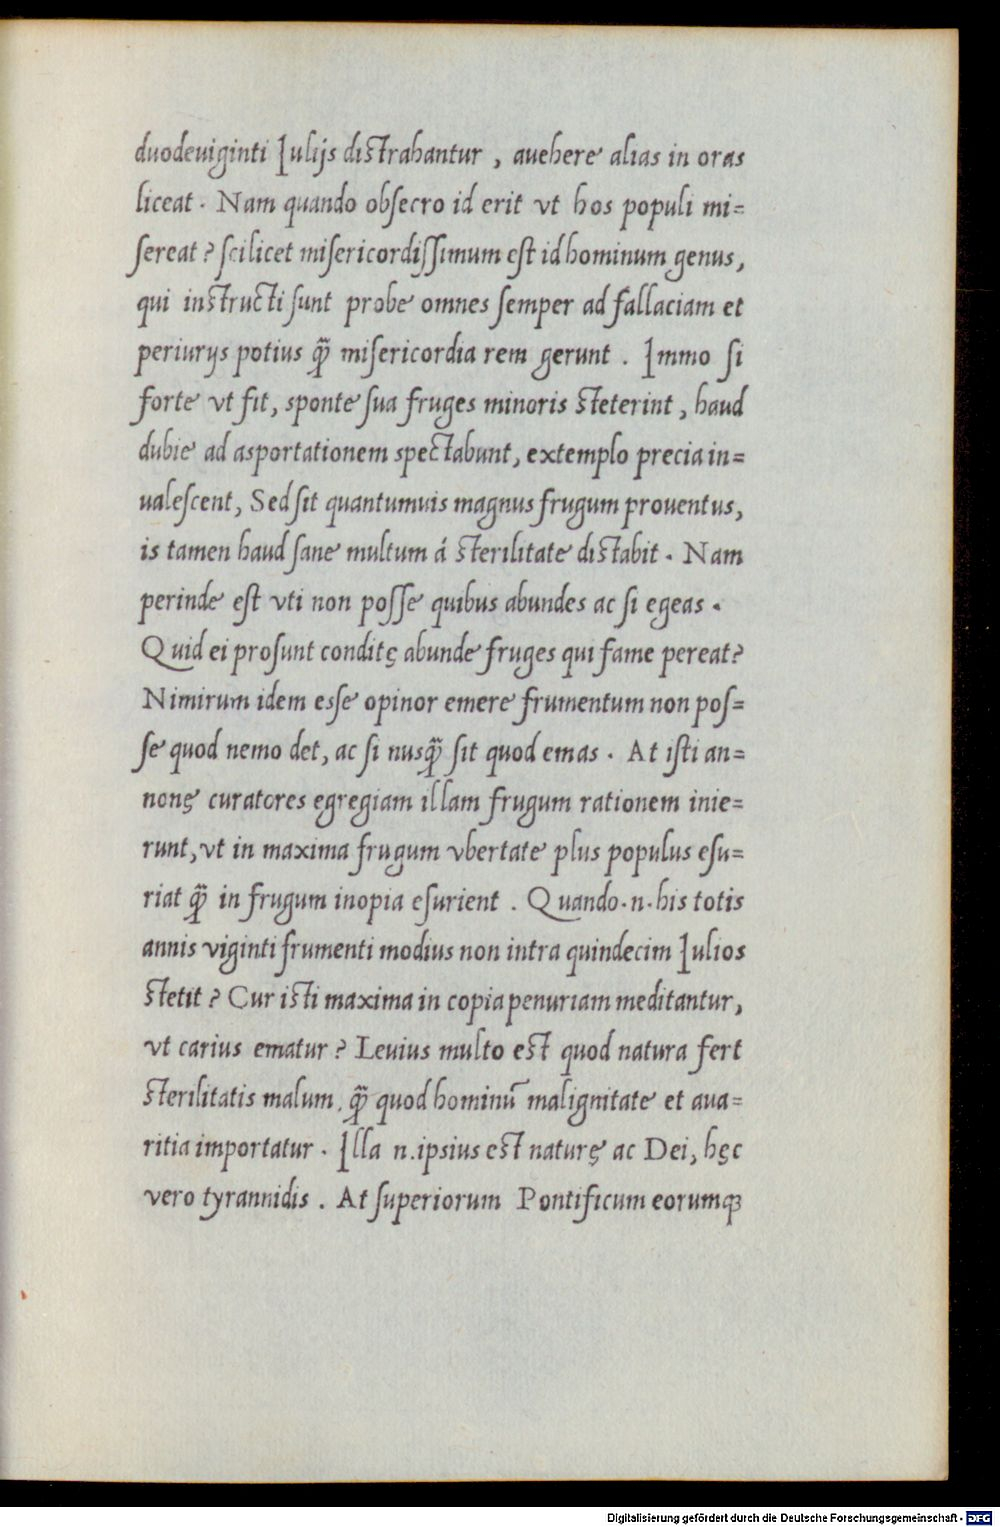 duodeuiginti Iulijs distrahantur , auehere alias in oras
liceat . Nam quando obsecro id erit vt hos populi mi=
sereat ? scilicet misericordissimum est id hominum genus,
qui instructi sunt probe omnes semper ad fallaciam et
periurijs potius qȝ̃ misericordia rem gerunt . Immo si
forte vt fit, sponte sua fruges minoris steterint, haud
dubie ad asportationem spectabunt, extemplo precia in=
ualescent, Sed sit quantumuis magnus frugum prouentus,
is tamen haud sane multum á sterilitate distabit . Nam
perinde est vti non posse quibus abundes ac si egeas .
Quid ei prosunt conditę abunde fruges qui fame pereat?
Nimirum idem esse opinor emere frumentum non pos=
se quod nemo det, ac si nusqȝ̃ sit quod emas . At isti an=
nonę curatores egregiam illam frugum rationem inie=
runt, vt in maxima frugum vbertate plus populus esu=
riat qȝ̃ in frugum inopia esurient . Quando .n. his totis
annis viginti frumenti modius non intra quindecim Iulios
stetit ? Cur isti maxima in copia penuriam meditantur,
vt carius ematur ? Leuius multo est quod natura fert
sterilitatis malum, qȝ̃ quod hominũ malignitate et aua=
ritia importatur . Illa n. ipsius est naturę ac Dei, hęc
vero tyrannidis . At superiorum Pontificum eorumqȝ
Digitalisierung gefördert durch die Deutsche Forschungsgemeinschaft - DFG